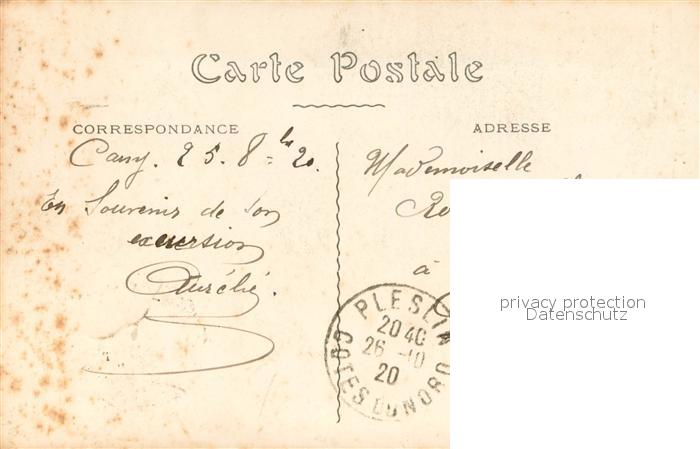 Carte Postale
CORRESPONDANCE
ADRESSE
25. 8 - 20.
En Souvenir de son
excursion
Aurélie.
Mademoiselle
à
PLESLIN
20 40
26 - 10
20
COTES DU NORD
privacy protection
Datenschutz